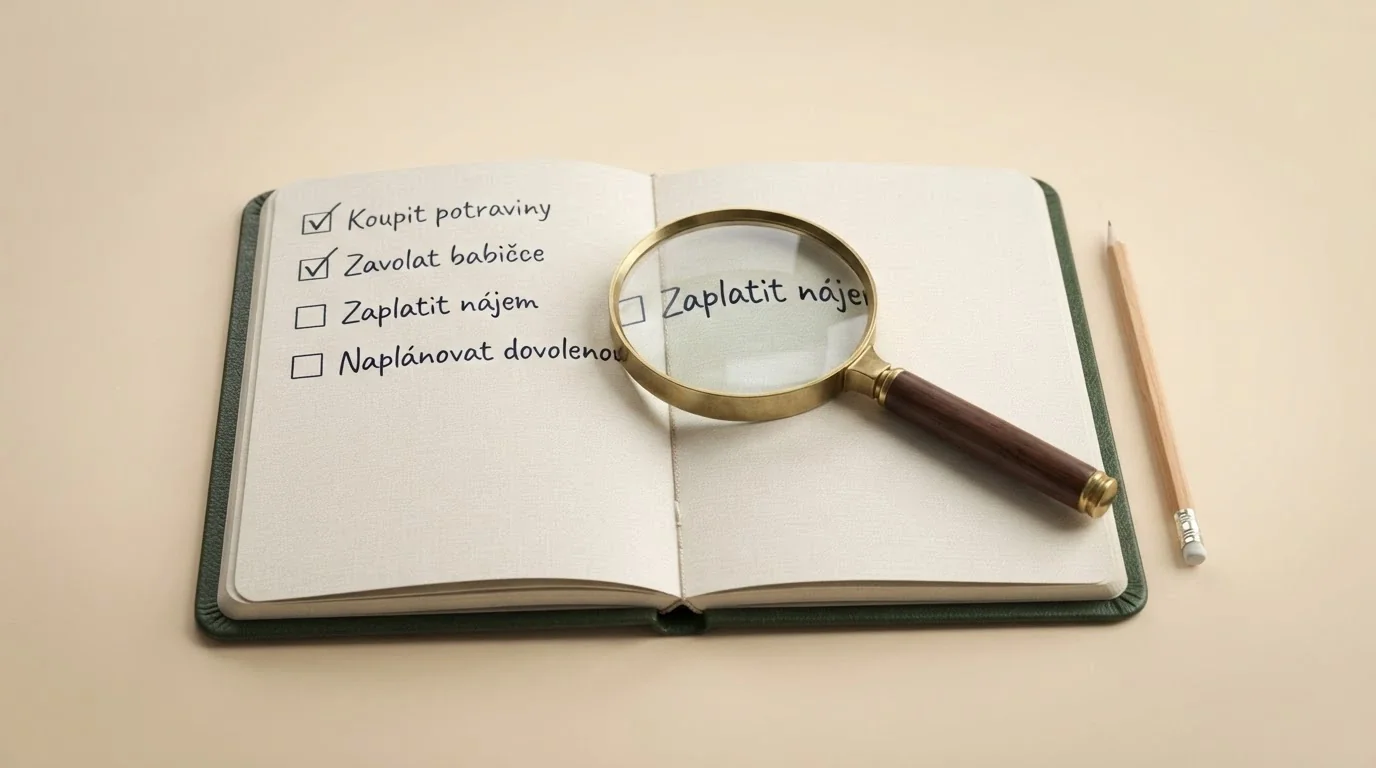 Koupit potraviny
Zavolat babičce
Zaplatit nájem
Naplánovat dovolenou
Zaplatit nájem